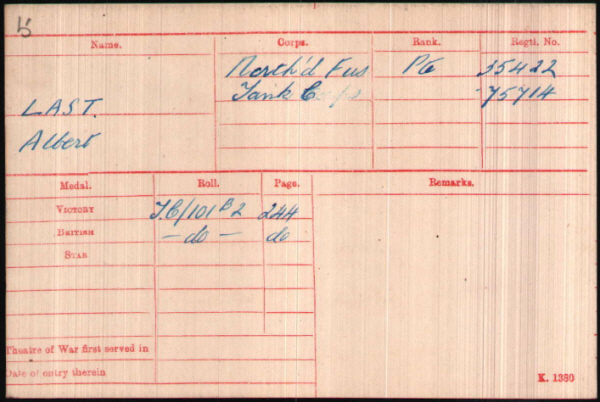 15
Name. Corps. Rank. Regtl. No.
North'd Fus Pte 35422
Tank Corps 75714
LAST.
Albert
Medal. Roll. Page. Remarks.
VICTORY T.C/101 B 2 244
BRITISH —do— do
STAR
Theatre of War first served in
Date of entry therein
K. 1380